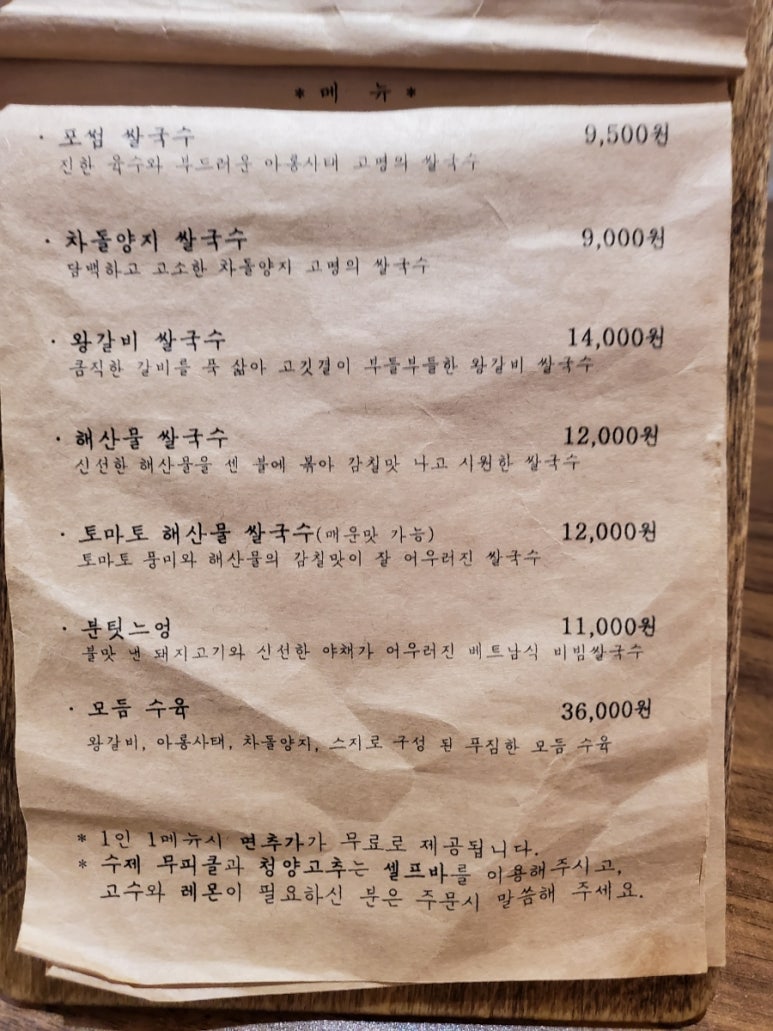 * 메 뉴 *
· 포썸 쌀국수 9,500원
진한 육수와 부드러운 아롱사태 고명의 쌀국수
· 차돌양지 쌀국수 9,000원
담백하고 고소한 차돌양지 고명의 쌀국수
· 왕갈비 쌀국수 14,000원
큼직한 갈비를 푹 삶아 고깃결이 부들부들한 왕갈비 쌀국수
· 해산물 쌀국수 12,000원
신선한 해산물을 센 불에 볶아 감칠맛 나고 시원한 쌀국수
· 토마토 해산물 쌀국수(매운맛 가능) 12,000원
토마토 풍미와 해산물의 감칠맛이 잘 어우러진 쌀국수
· 분팃느엉 11,000원
불맛 낸 돼지고기와 신선한 야채가 어우러진 베트남식 비빔쌀국수
· 모듬 수육 36,000원
왕갈비, 아롱사태, 차돌양지, 스지로 구성 된 푸짐한 모듬 수육
* 1인 1메뉴시 면추가가 무료로 제공됩니다.
* 수제 무피클과 청양고추는 셀프바를 이용해주시고,
고수와 레몬이 필요하신 분은 주문시 말씀해 주세요.